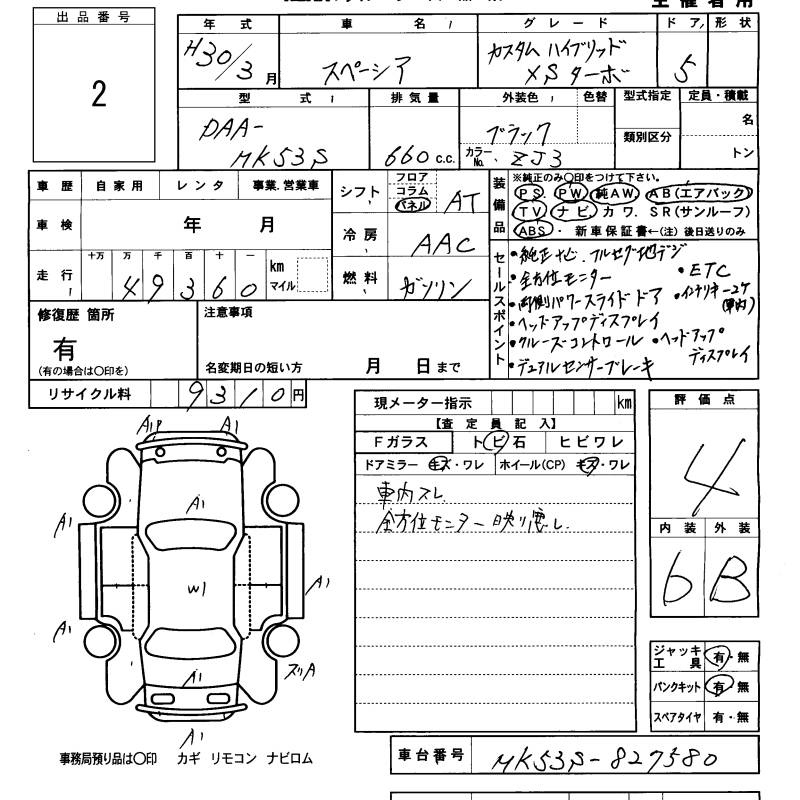 出品番号
2
年式 車名 グレード ドア 形状
H30/3月 スペーシア カスタム ハイブリッド XSターボ 5
型式 排気量 外装色 色替 型式指定 定員・積載
DAA-MK53S 660c.c. ブラック カラーNo. ZJ3 類別区分 名 トン
車歴 自家用 レンタ 事業.営業車
車検 年 月
走行 十万 万 千 百 十 一 km マイル
49360
シフト フロア コラム パネル AT
冷房 AAC
燃料 ガソリン
装備品
※純正のみ○印をつけて下さい。
PS PW 純AW AB(エアバック)
TV ナビ カワ SR(サンルーフ)
ABS・新車保証書←(注)後日送りのみ
セールスポイント
・純正ナビ.フルセグ地デジ
・全方位モニター ・ETC
・両側パワースライドドア ・インテリキー2ケ(車内)
・ヘッドアップディスプレイ
・クルーズコントロール ・ヘッドアップディスプレイ
・デュアルセンサーブレーキ
修復歴 箇所
有
(有の場合は○印を)
注意事項
名変期日の短い方 月 日まで
リサイクル料 9310円
現メーター指示 km
【査定員記入】
Fガラス トビ石 ヒビワレ
ドアミラー キズ・ワレ ホイール(CP) キズ・ワレ
車内スレ
全方位モニター映り悪し.
評価点
4
内装 外装
6 B
ジャッキ工具 有・無
パンクキット 有・無
スペアタイヤ 有・無
A1P A1
A1
A1
W1
A1
A1
スリA
A1
A1
事務局預り品は○印 カギ リモコン ナビロム
車台番号 MK53S-827580